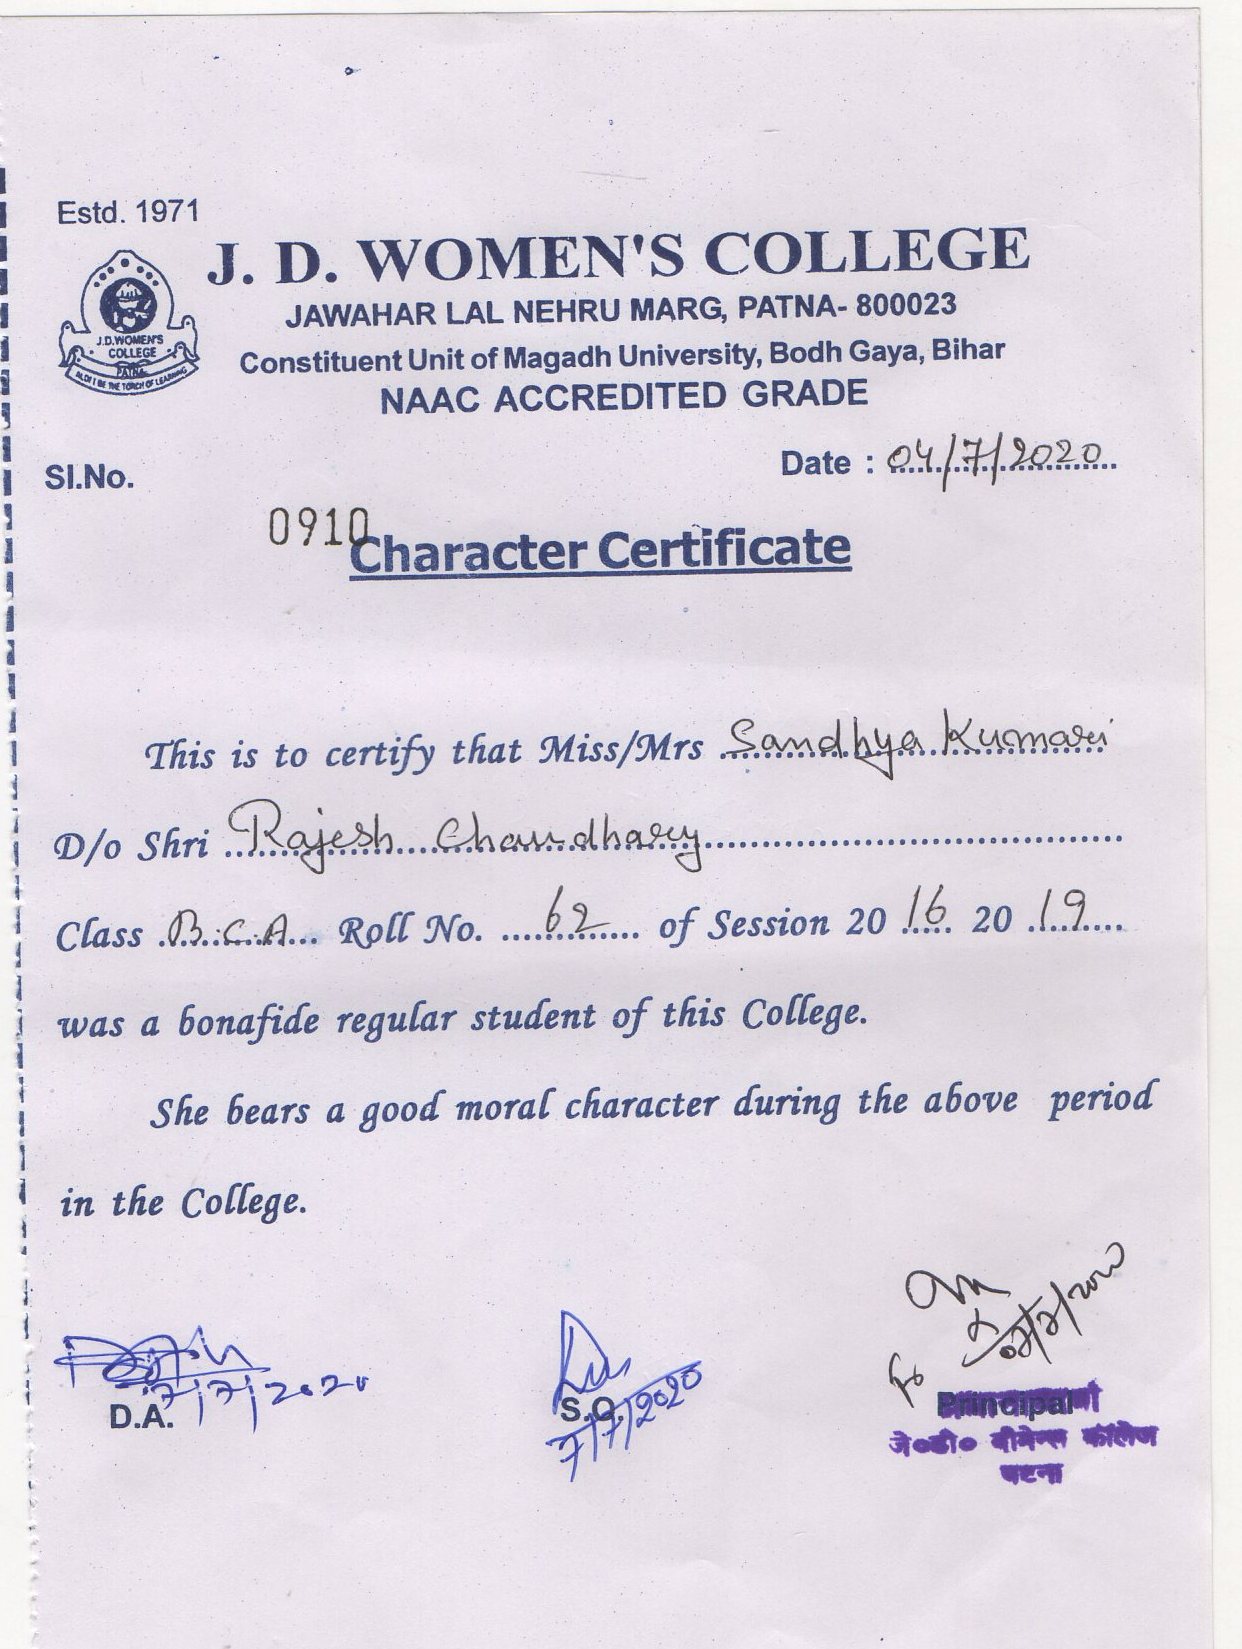 Estd. 1971
J. D. WOMEN'S COLLEGE
JAWAHAR LAL NEHRU MARG, PATNA- 800023
Constituent Unit of Magadh University, Bodh Gaya, Bihar
NAAC ACCREDITED GRADE
J.D.WOMEN'S
COLLEGE
PATNA
BE THE TORCH OF LEARNING
Sl.No.
Date : 04/7/2020
0910
Character Certificate
This is to certify that Miss/Mrs Sandhya Kumari
D/o Shri Rajesh Chaudhary
Class B.C.A Roll No. 62 of Session 20 16 20 19
was a bonafide regular student of this College.
She bears a good moral character during the above period
in the College.
7/7/2020
D.A.
S.O.
7/7/2020
Principal
जे०डी० वीमेन्स कॉलेज
पटना